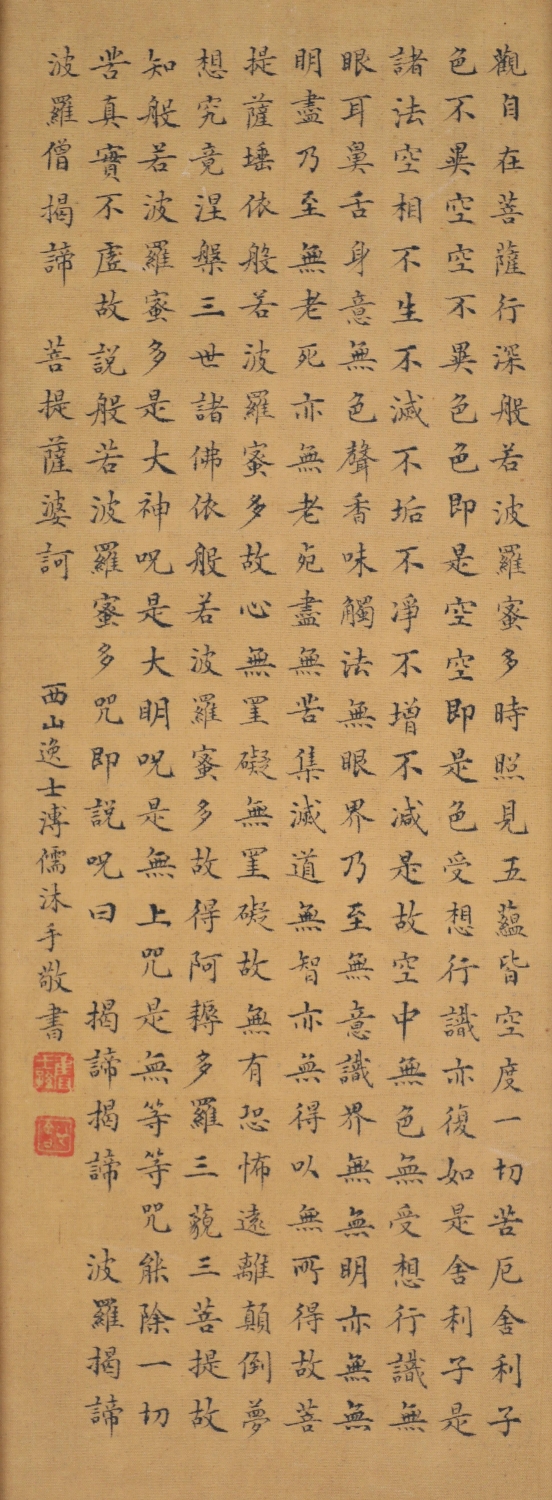 觀自在菩薩行深般若波羅蜜多時照見五蘊皆空度一切苦厄舍利子
色不異空空不異色色即是空空即是色受想行識亦復如是舍利子是
諸法空相不生不滅不垢不凈不增不减是故空中無色無受想行識無
眼耳鼻舌身意無色聲香味觸法無眼界乃至無意識界無無明亦無無
明盡乃至無老死亦無老死盡無苦集滅道無智亦無得以無所得故菩
提薩埵依般若波羅蜜多故心無罣礙無罣礙故無有恐怖遠離顛倒夢
想究竟涅槃三世諸佛依般若波羅蜜多故得阿耨多羅三藐三菩提故
知般若波羅蜜多是大神呪是大明呪是無上咒是無等等咒能除一切
苦真實不虛故說般若波羅蜜多咒即說呪曰 揭諦揭諦 波羅揭諦
波羅僧揭諦 菩提薩婆訶
西山逸士溥儒沐手敬書